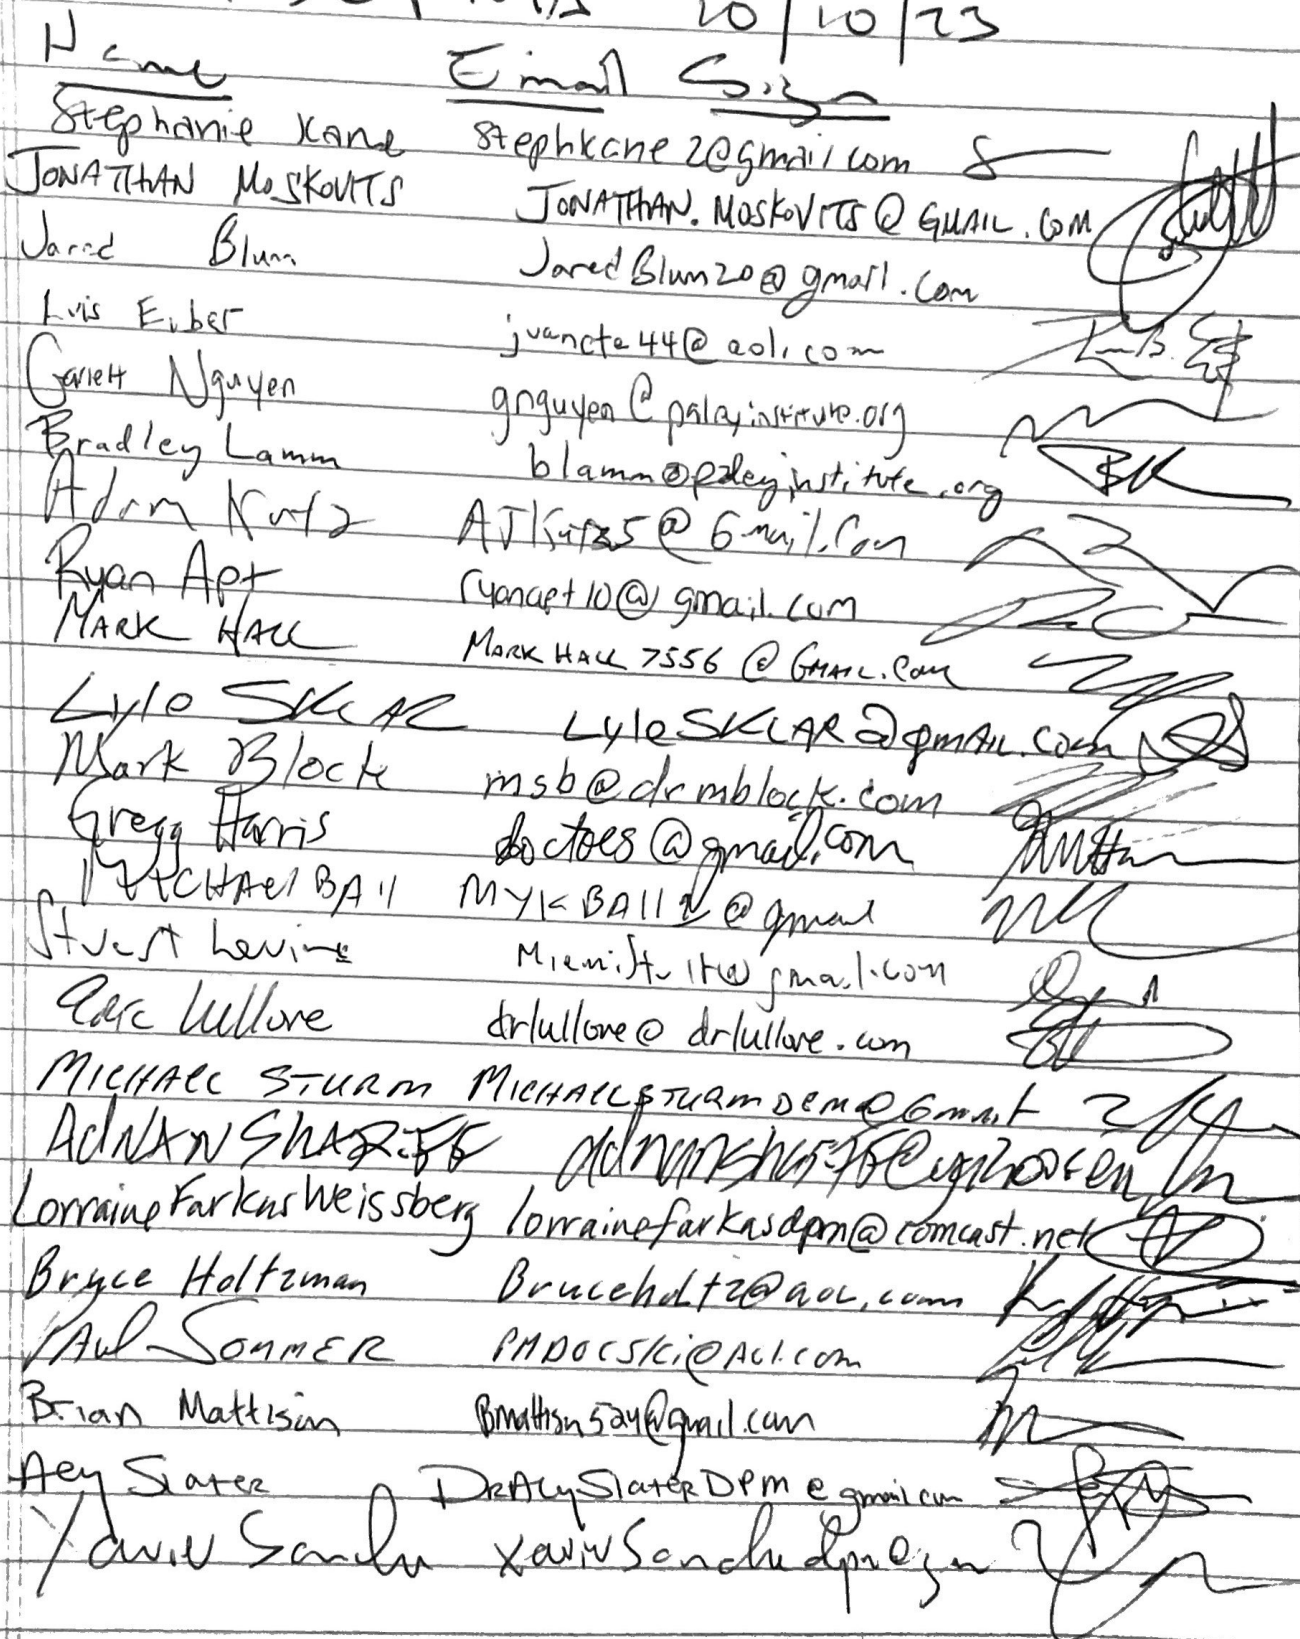 10/10/23
Name Email Sign
Stephanie Kane stephkane2@gmail.com
JONATHAN MOSKOVITS JONATHAN.MOSKOVITS@GMAIL.COM
Jared Blum JaredBlum20@gmail.com
Luis Eiber juancte44@aol.com
Garrett Nguyen gnguyen@paleyinstitute.org
Bradley Lamm blamm@paleyinstitute.org
Adam Katz @Gmail.Com
Ryan Apt ryanapt10@gmail.com
MARK HALL MARKHALL7556@GMAIL.Com
Lyle SKLAR LyleSKLAR@gmAIL.com
Mark Block msb@drmblock.com
Gregg Harris doctoes@gmail.com
MICHAEl BAll @gmail
Stuart Levine @gmail.com
Eric Lullove drlullove@drlullove.com
MICHAEL STURM MICHAELSTURMDPM@Gmail
AdNAN SHARIFF
Lorraine Farkas Weissberg lorrainefarkasdpm@comcast.net
Bryce Holtzman Bruceholtz@aol.com
PAul SOMMER PMDOCSKi@AOl.com
Brian Mattison @gmail.com
Aly Slater DRAlySlaterDPM@gmail.com